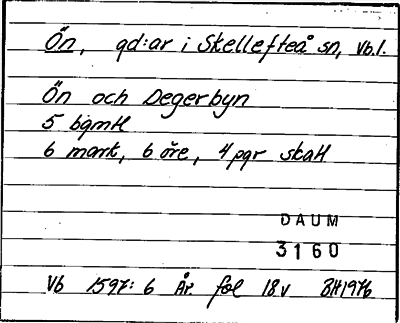 Ön, gd:ar i Skellefteå sn, Vb.l.
Ön och Degerbyn
5 bgmtl
6 mark, 6 öre, 4 pgr skatt
DAUM
3160
Vb 1597: 6 År fol 18v BH1976